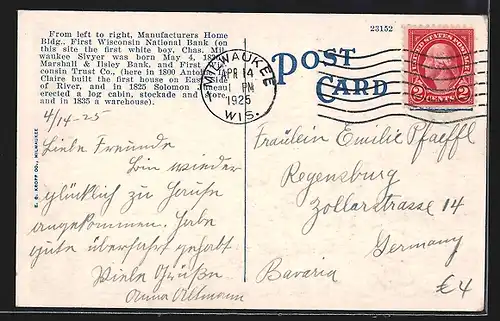 From left to right, Manufacturers Home
Bldg., First Wisconsin National Bank (on
this site the first white boy, Chas. Mil-
waukee Sivyer was born May 4,
Marshall & Ilsley Bank, and First
consin Trust Co., (here in 1800
Claire built the first house on East
of River, and in 1825 Solomon
erected a log cabin, stockade and
and in 1835 a warehouse).
23152
POST
CARD
MILWAUKEE
APR 14
1 PM
1925
WIS.
UNITED STATES POSTAGE
2 CENTS 2
E. C. KROPP CO., MILWAUKEE
4/14-25
Liebe Freunde
Bin wieder
glücklich zu Hause
angekommen. Habe
gute überfahrt gehabt
Viele Grüße
Anna Altmann
Fräulein Emilie Pfaeffl
Regensburg
Zollerstrasse 14
Germany
Bavaria
€4